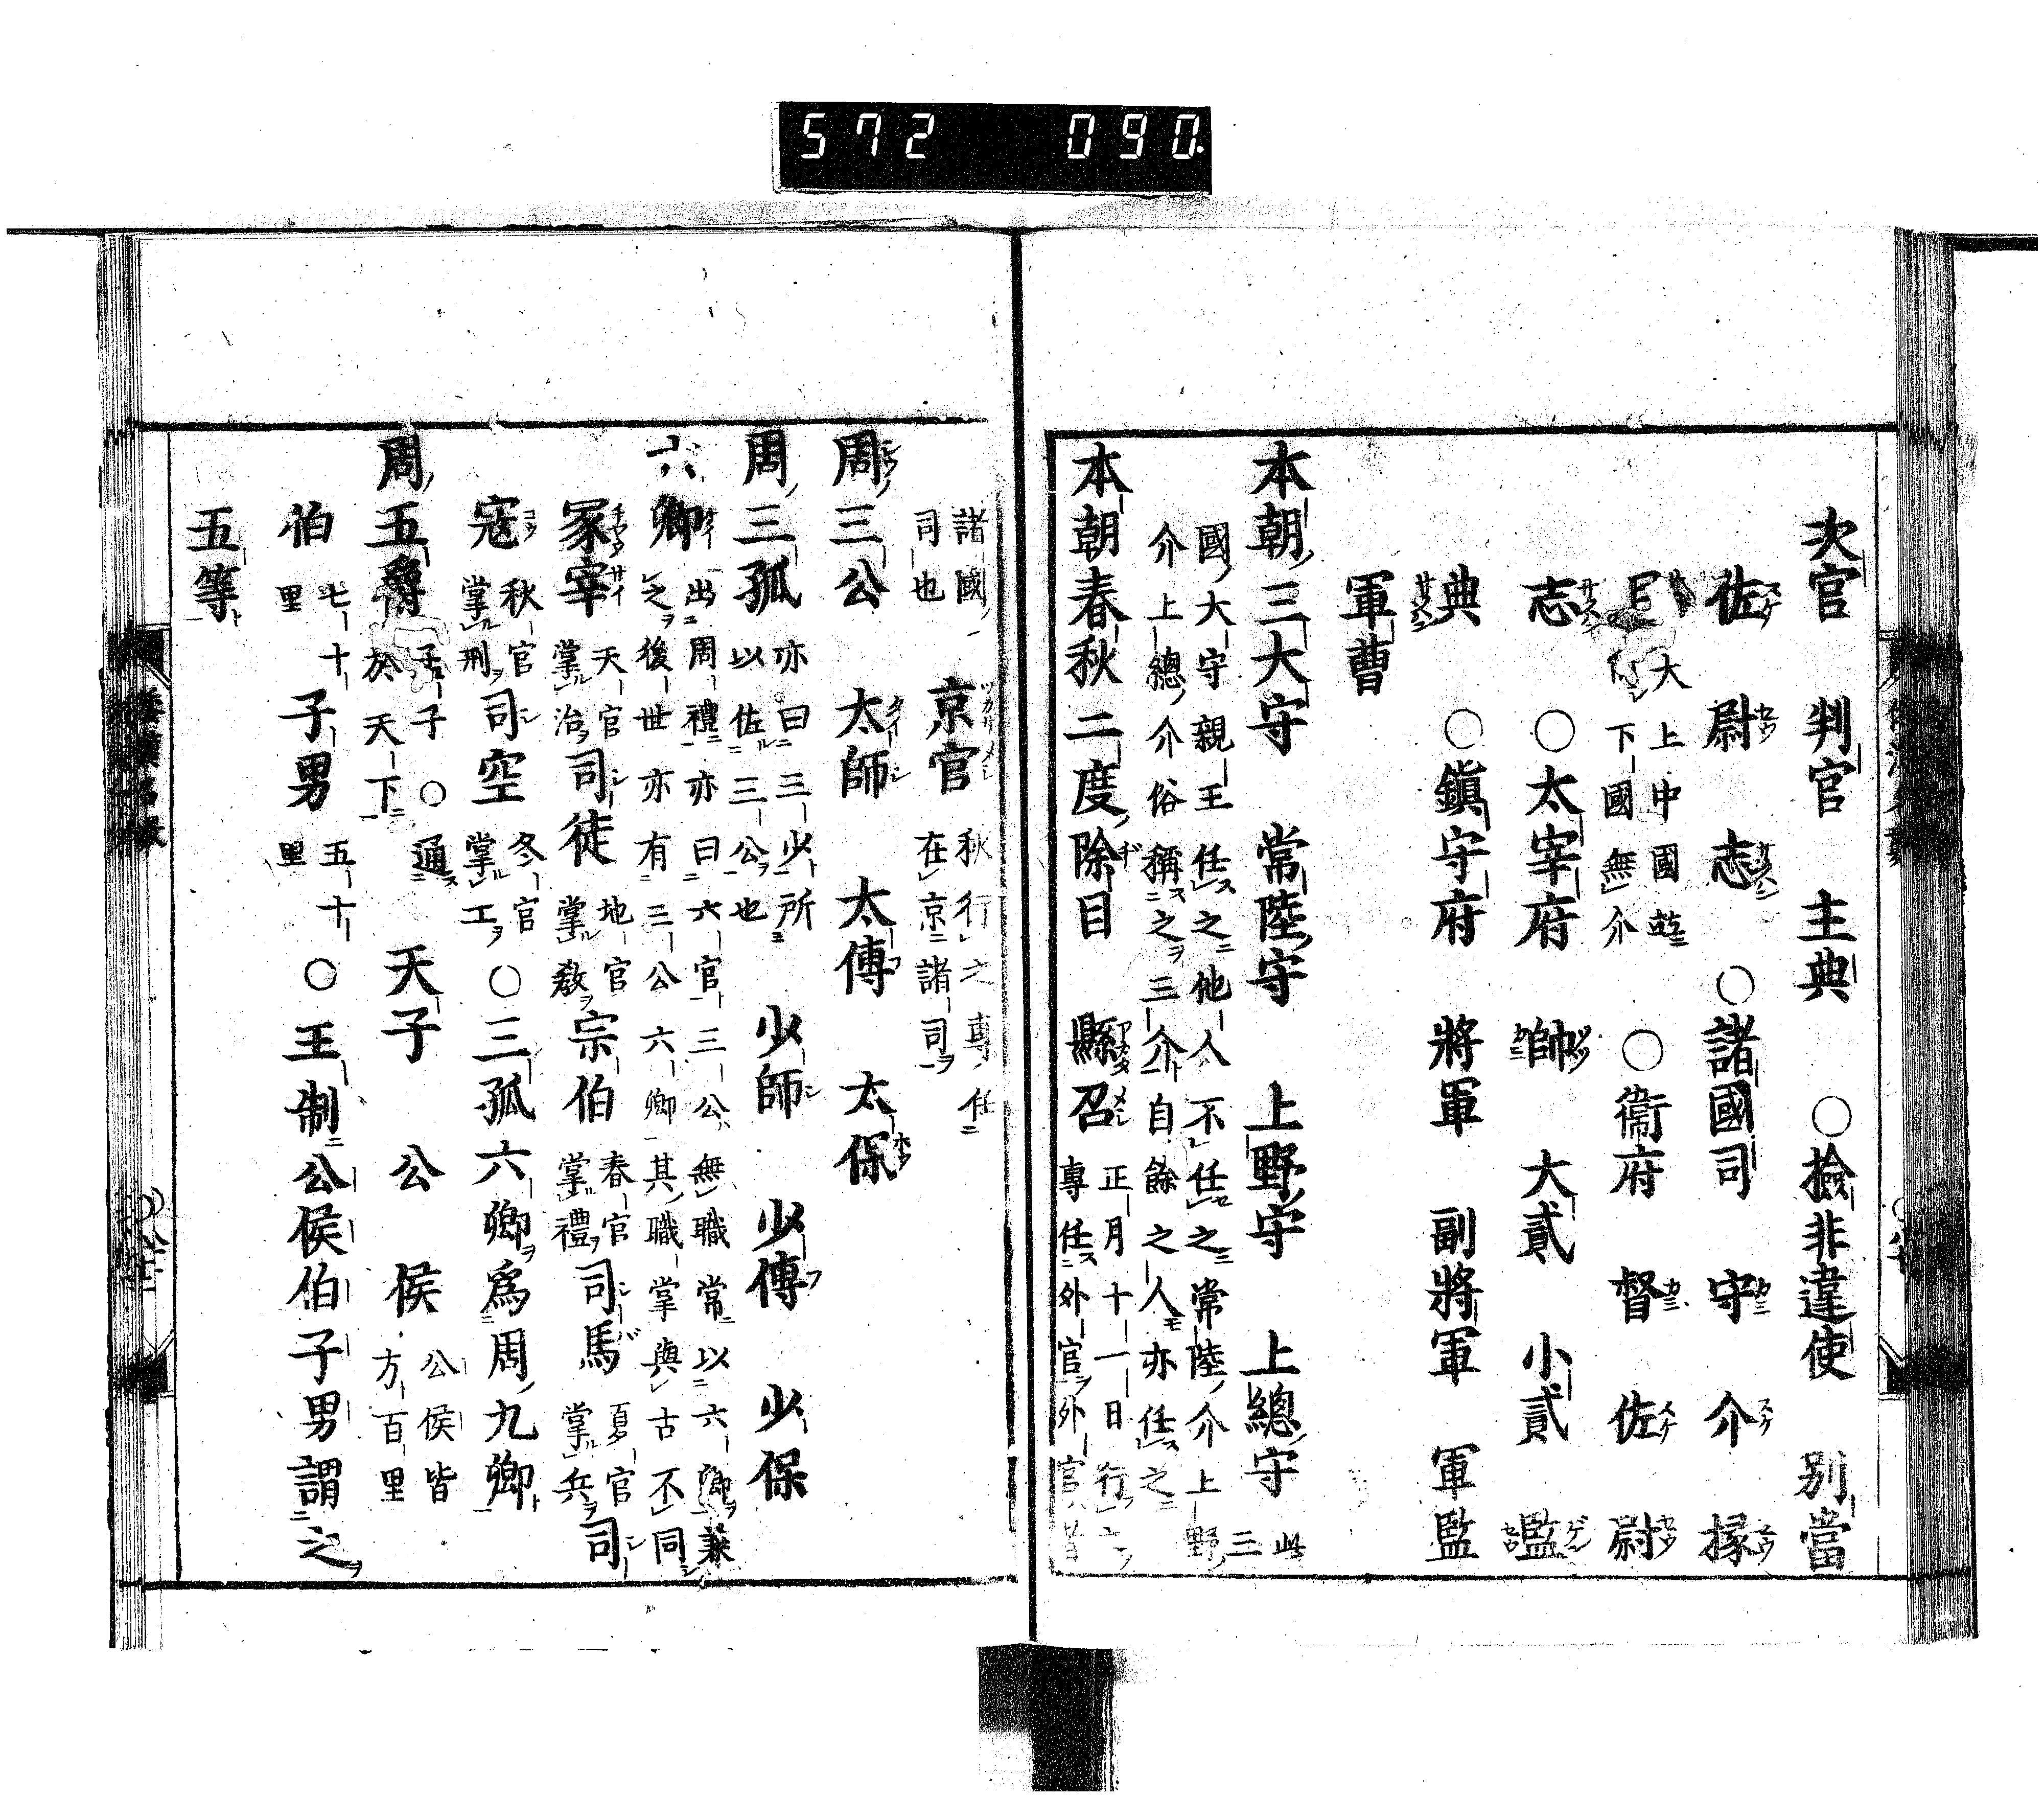 572 090
次官 判官 主典 ○撿非違使 別當
佐 尉 志 ○諸國司 守 介 掾
目 大上中國並下國無介 ○衞府 督 佐 尉
志 ○太宰府 帥 大貳 小貳 監
典 ○鎭守府 將軍 副將軍 軍監
軍曹
本朝三大守 常陸守 上野守 上總守 此三
國大守親王任之他人不任之常陸介上野
介上總介俗稱之三介自餘之人亦任之
本朝春秋二度除目 縣召 正月十一日行之專任外官外官者
諸國司也 京官 秋行之專任在京諸司
周三公 太師 太傅 太保
周三孤 亦曰三少所以佐三公也 少師 少傅 少保
六卿 出周禮亦曰六官三公無職常以六卿兼之後世亦有三公六卿其職掌與古不同
冢宰 天官掌治 司徒 地官掌敎 宗伯 春官掌禮 司馬 夏官掌兵 司
寇 秋官掌刑 司空 冬官掌工 ○三孤六卿爲周九卿
周五爵 於天下 ○通 天子 公 侯 公侯皆方百里
伯 七十里 子男 五十里 ○王制公侯伯子男謂之
五等